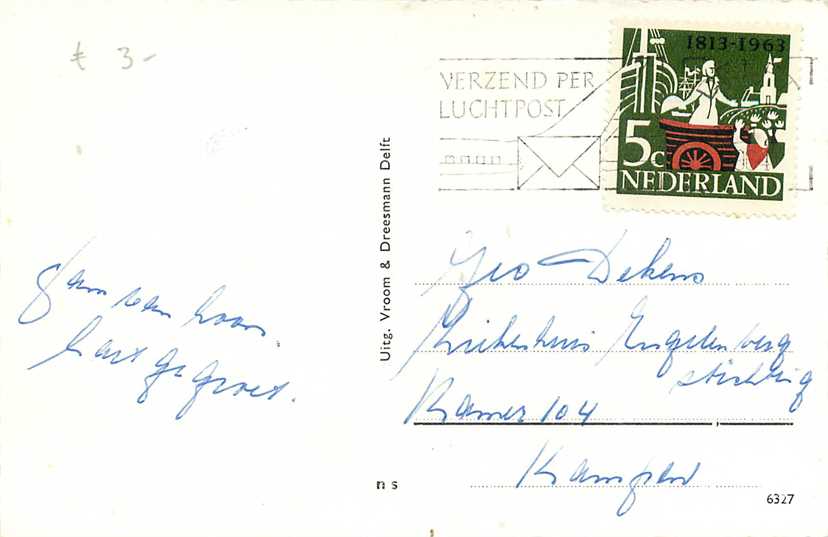 € 3-
1813-1963
VERZEND PER
LUCHTPOST
5c
NEDERLAND
Uitg. Vroom & Dreesmann Delft
van
hart gegroet.
Geo Dekens
Ziekenhuis Engelenberg
stichting
Kamer 104
Kampen
ns
6327